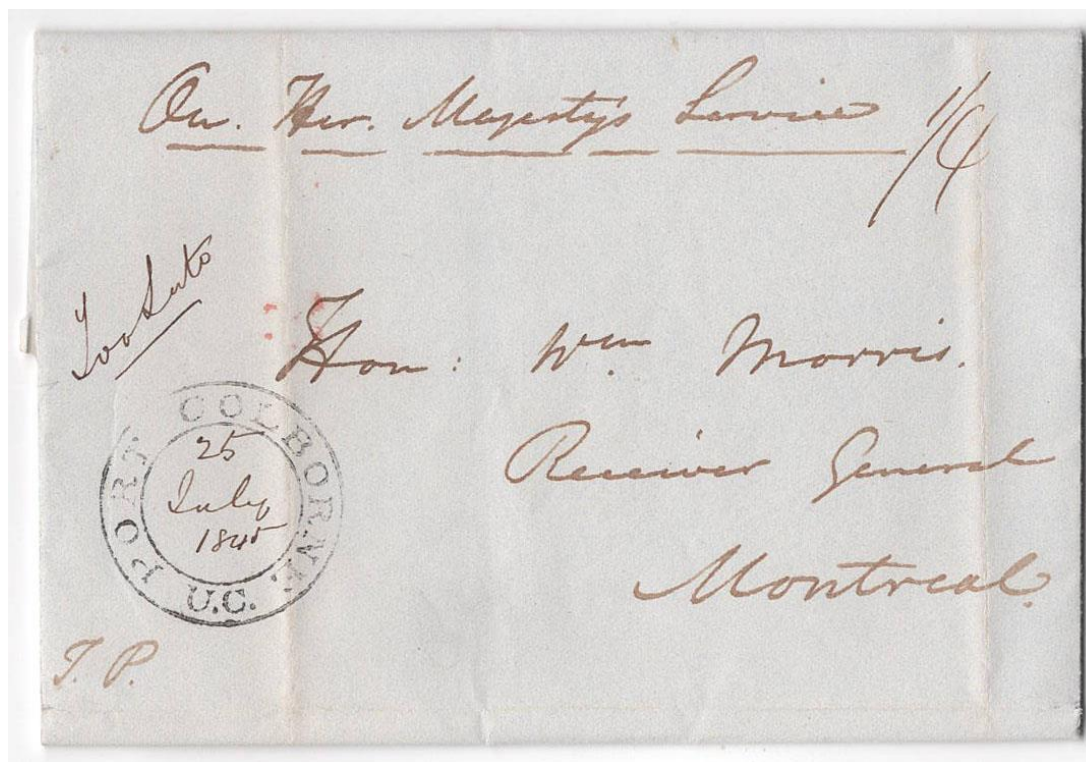 On. Her. Majesty's Service 1/4
Too Late
Hon: Wm. Morris.
Receiver General
Montreal.
PORT COLBORNE
25
July
1845
U.C.
J. P.